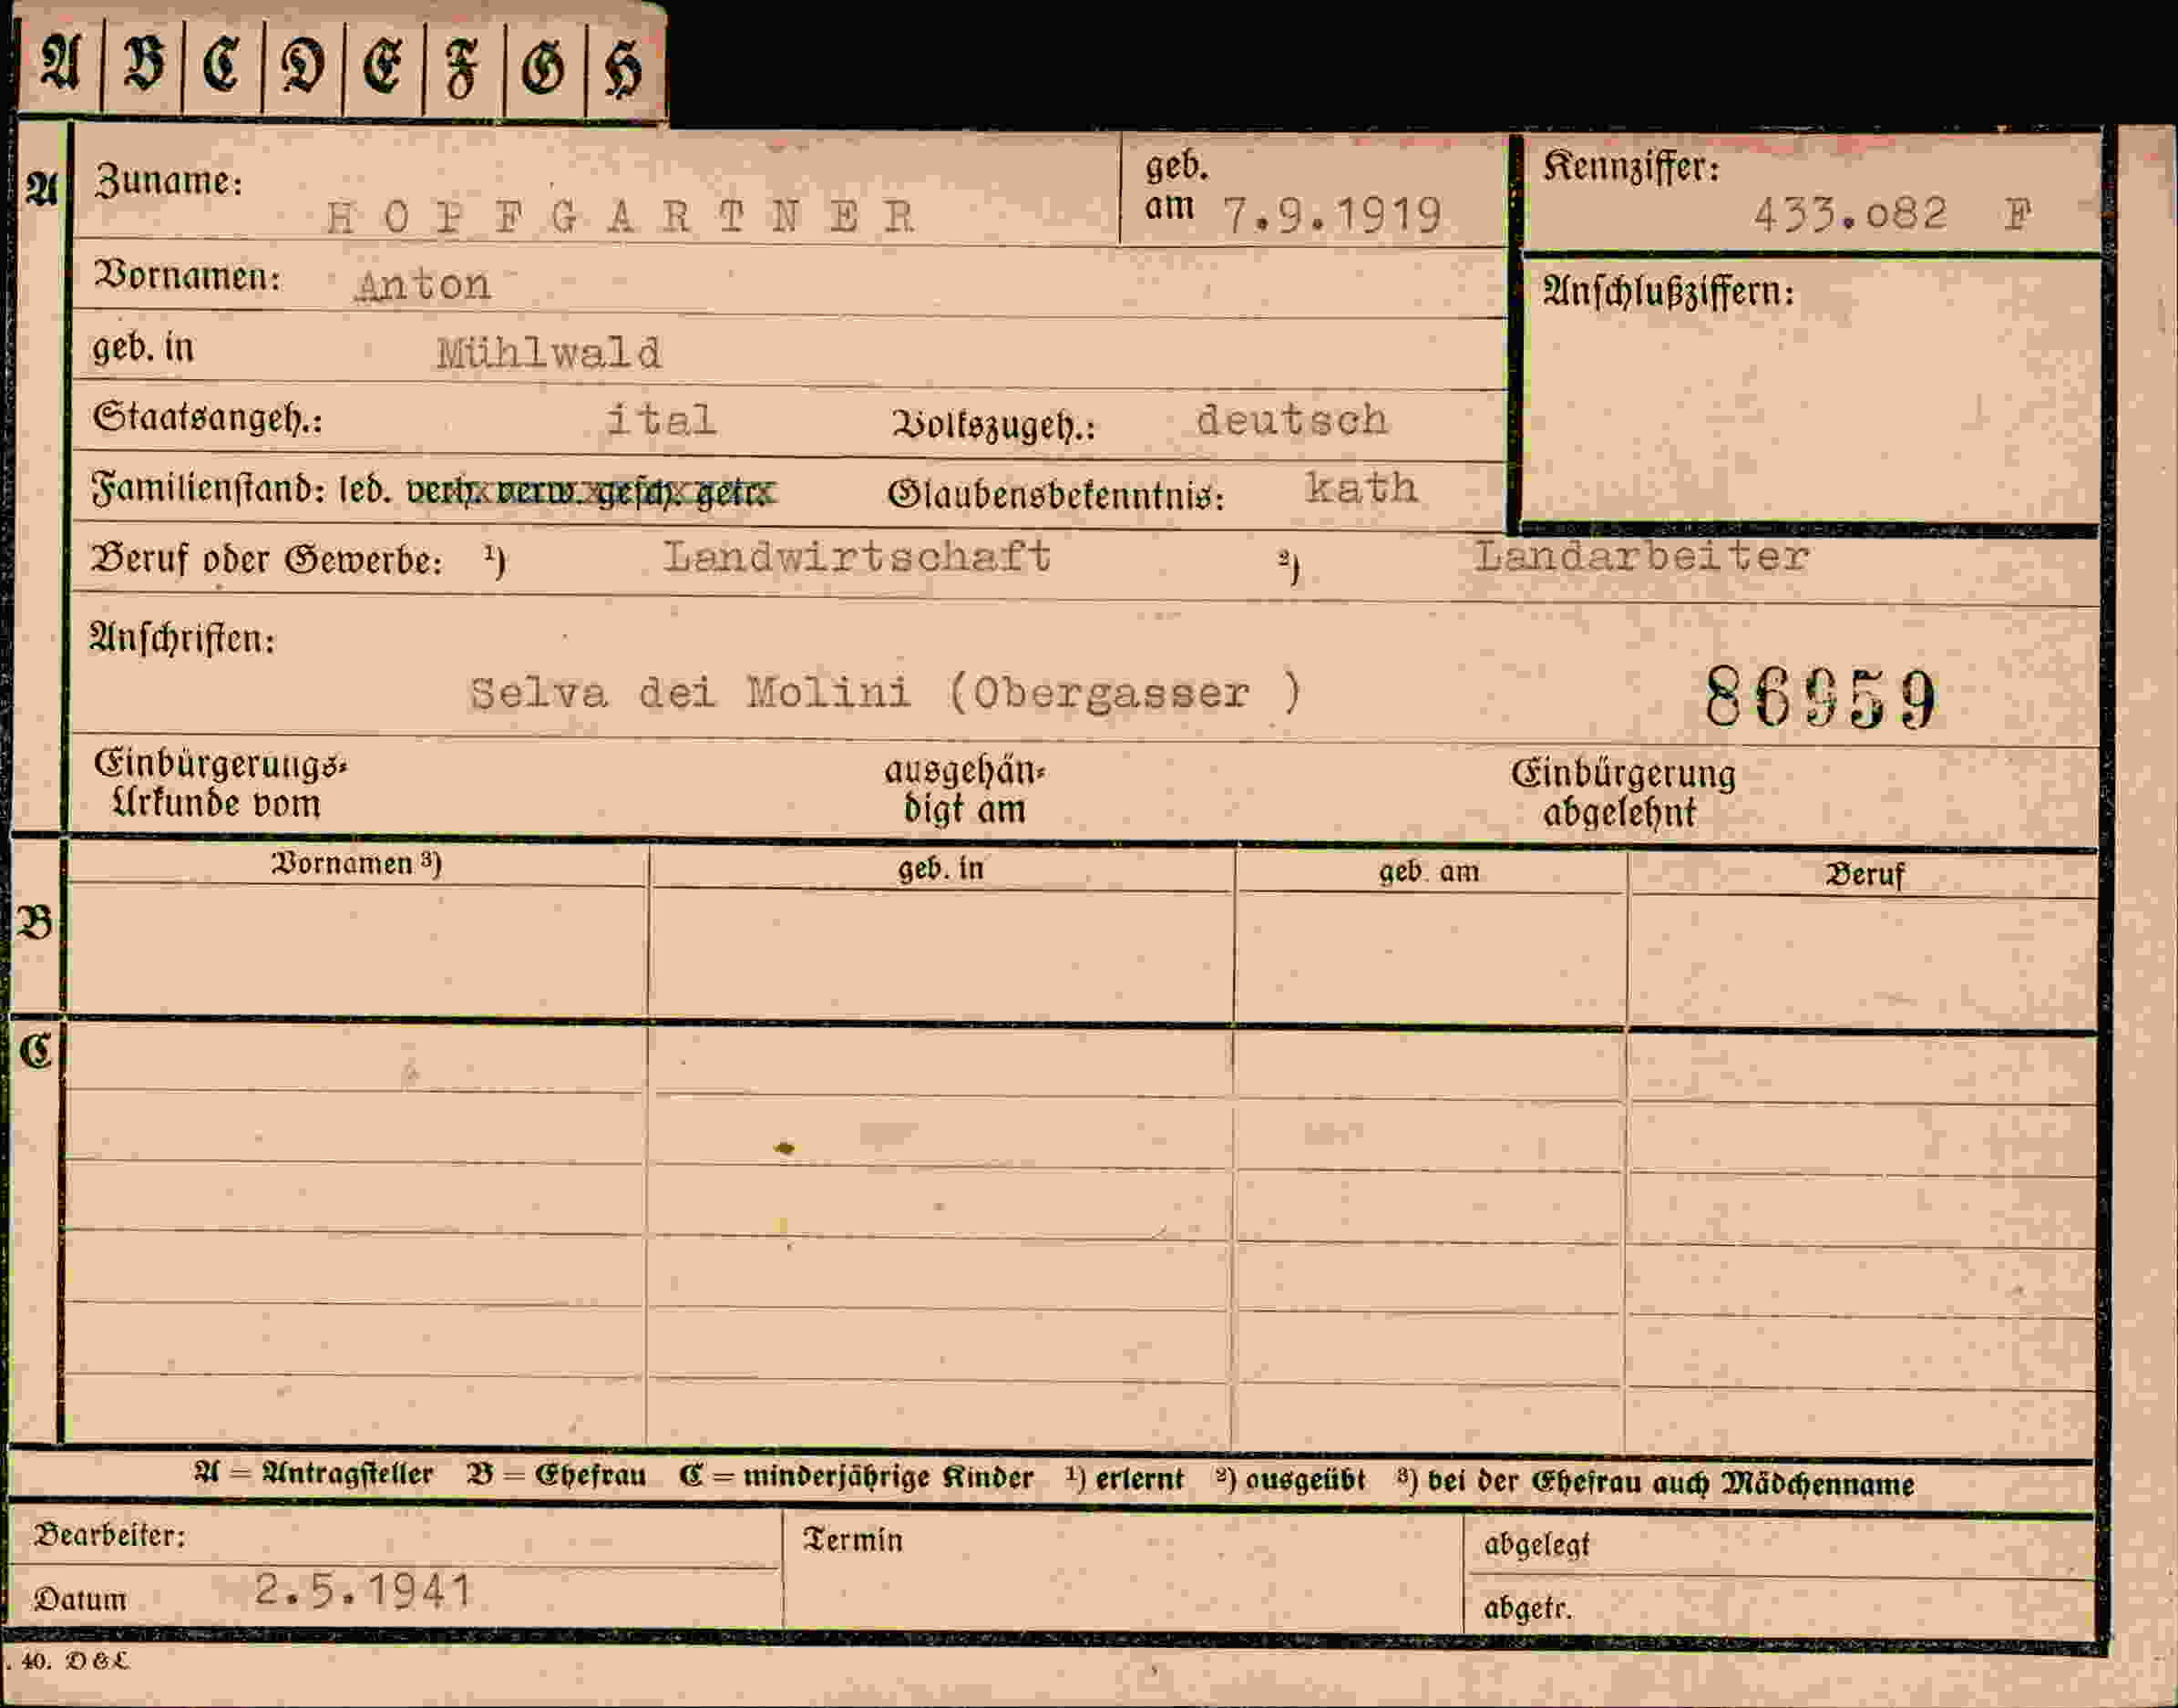 A B C D E F G H
A Zuname: HOPFGARTNER geb. am 7.9.1919 Kennziffer: 433.o82 F
Vornamen: Anton Anschlußziffern:
geb. in Mühlwald
Staatsangeh.: ital Volkszugeh.: deutsch
Familienstand: led. verh. verw. gesch. getr. Glaubensbekenntnis: kath
Beruf oder Gewerbe: ¹) Landwirtschaft ²) Landarbeiter
Anschriften:
Selva dei Molini (Obergasser ) 86959
Einbürgerungs- ausgehän- Einbürgerung
Urkunde vom digt am abgelehnt
Vornamen ³) geb. in geb. am Beruf
B
C
A = Antragsteller B = Ehefrau C = minderjährige Kinder ¹) erlernt ²) ausgeübt ³) bei der Ehefrau auch Mädchenname
Bearbeiter: Termin abgelegt
Datum 2.5.1941 abgetr.
. 40. D &L